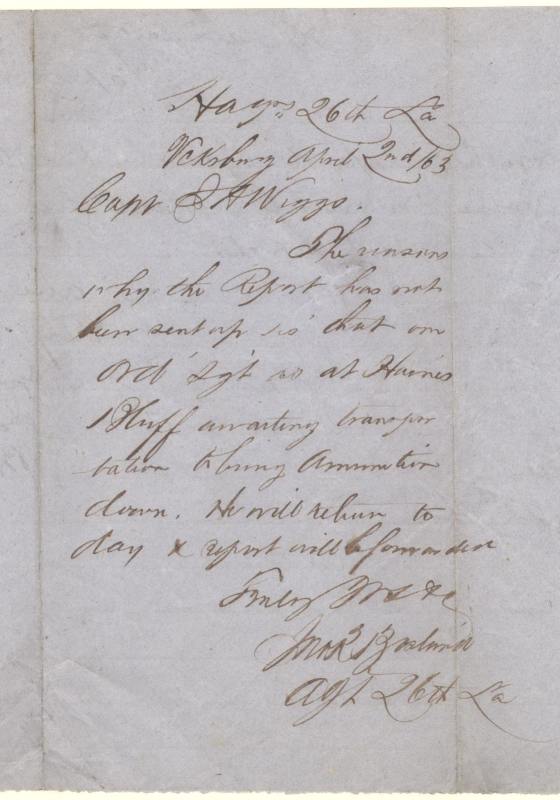 Hdqrs 26th La
Vcksburg April 2nd/63
Capt S A Wiggs.
The reason
why the Report has not
been sent up is that our
Ord Sgt is at Haines
Bluff awaiting transpor
tation to bring Amunition
down. He will return to
day & report will be forwarded
Truly Yrs &c
Jno R
Agt 26th La